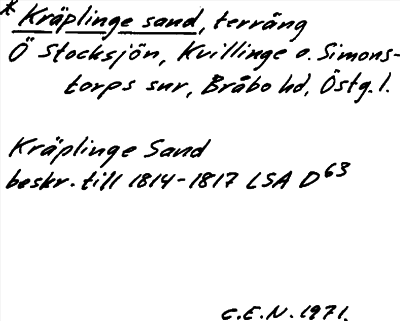 * Kräplinge sand, terräng
Ö Stocksjön, Kvillinge o. Simons-
torps snr, Bråbo hd, Östg. l.
Kräplinge Sand
beskr. till 1814-1817 LSA D63
C.E.N. 1971.